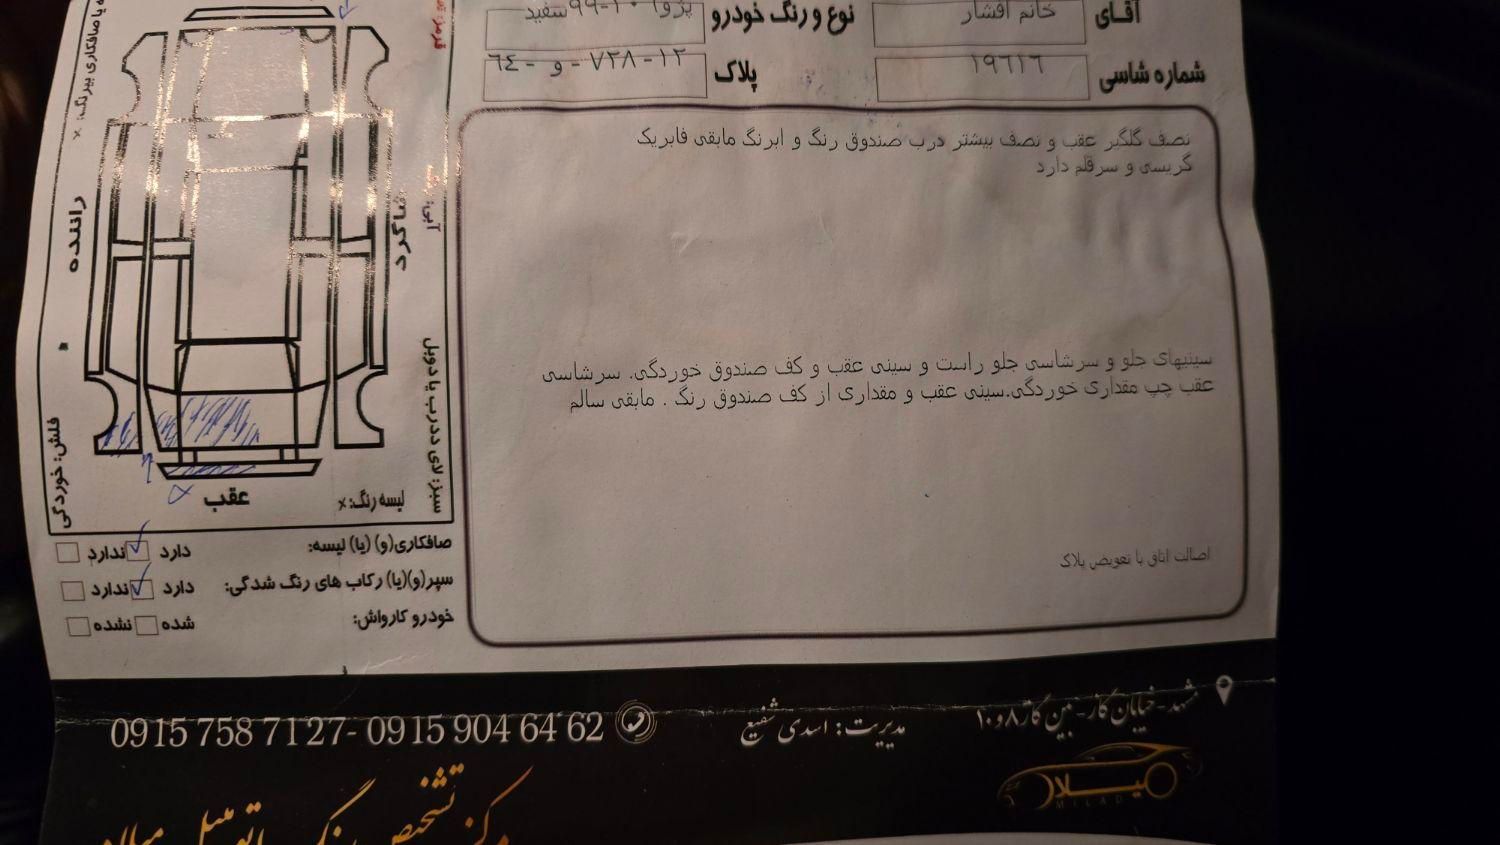 آقای خانم افشار نوع و رنگ خودرو سفید
شماره شاسی ۱۹۶۱۶ پلاک ۱۲-۷۲۸-و-۶۴
نصف گلگیر عقب و نصف بیشتر درب صندوق رنگ و ابرنگ مابقی فابریک
گریسی و سرقلم دارد
سینیهای جلو و سرشاسی جلو راست و سینی عقب و کف صندوق خوردگی. سرشاسی
عقب چپ مقداری خوردگی.سینی عقب و مقداری از کف صندوق رنگ . مابقی سالم
اصالت اتاق با تعویض پلاک
یا صافکاری بیرنگ: ×
قرمز:
آبی:
راننده
شاگرد
سبز: لای ددرب یا دوبل
فلش: خوردگی
عقب
لیسه رنگ: ×
صافکاری(و) (یا) لیسه: دارد ندارد
سپر(و)(یا) رکاب های رنگ شدگی: دارد ندارد
خودرو کارواش: شده نشده
مشهد-خیابان گاز-بین گاز ۸ و ۱۰
مدیریت: اسدی شفیع
0915 758 7127- 0915 904 64 62
میلاد
MILAD
مرکز تشخیص رنگ اتومبیل میلاد